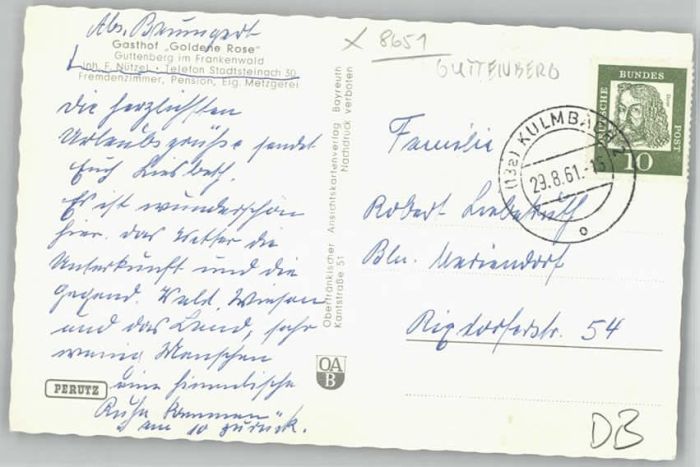 Abs. Baumgert
Gasthof „Goldene Rose"
Guttenberg im Frankenwald
Inh. F. Nützel • Telefon Stadtsteinach 30
Fremdenzimmer, Pension, Eig. Metzgerei
Die herzlichsten
Urlaubsgrüße sendet
Euch Liesbeth.
Es ist wunderschön
hier. das Wetter die
Unterkunft und die
Gegend. Wald, Wiesen
und das Land, sehr
wenig Menschen
eine himmlische
Ruhe kommen
am 10 zurück.
PERUTZ
Oberfränkischer Ansichtskartenverlag Bayreuth
Kantstraße 51 Nachdruck verboten
OA
B
x 8651
GUTTENBERG
DEUTSCHE BUNDESPOST
Dürer
10
(13a) KULMBACH 2
29.8.61.-15
c
Familie
Robert
Bln. Mariendorf
Rixdorferstr. 54
DB